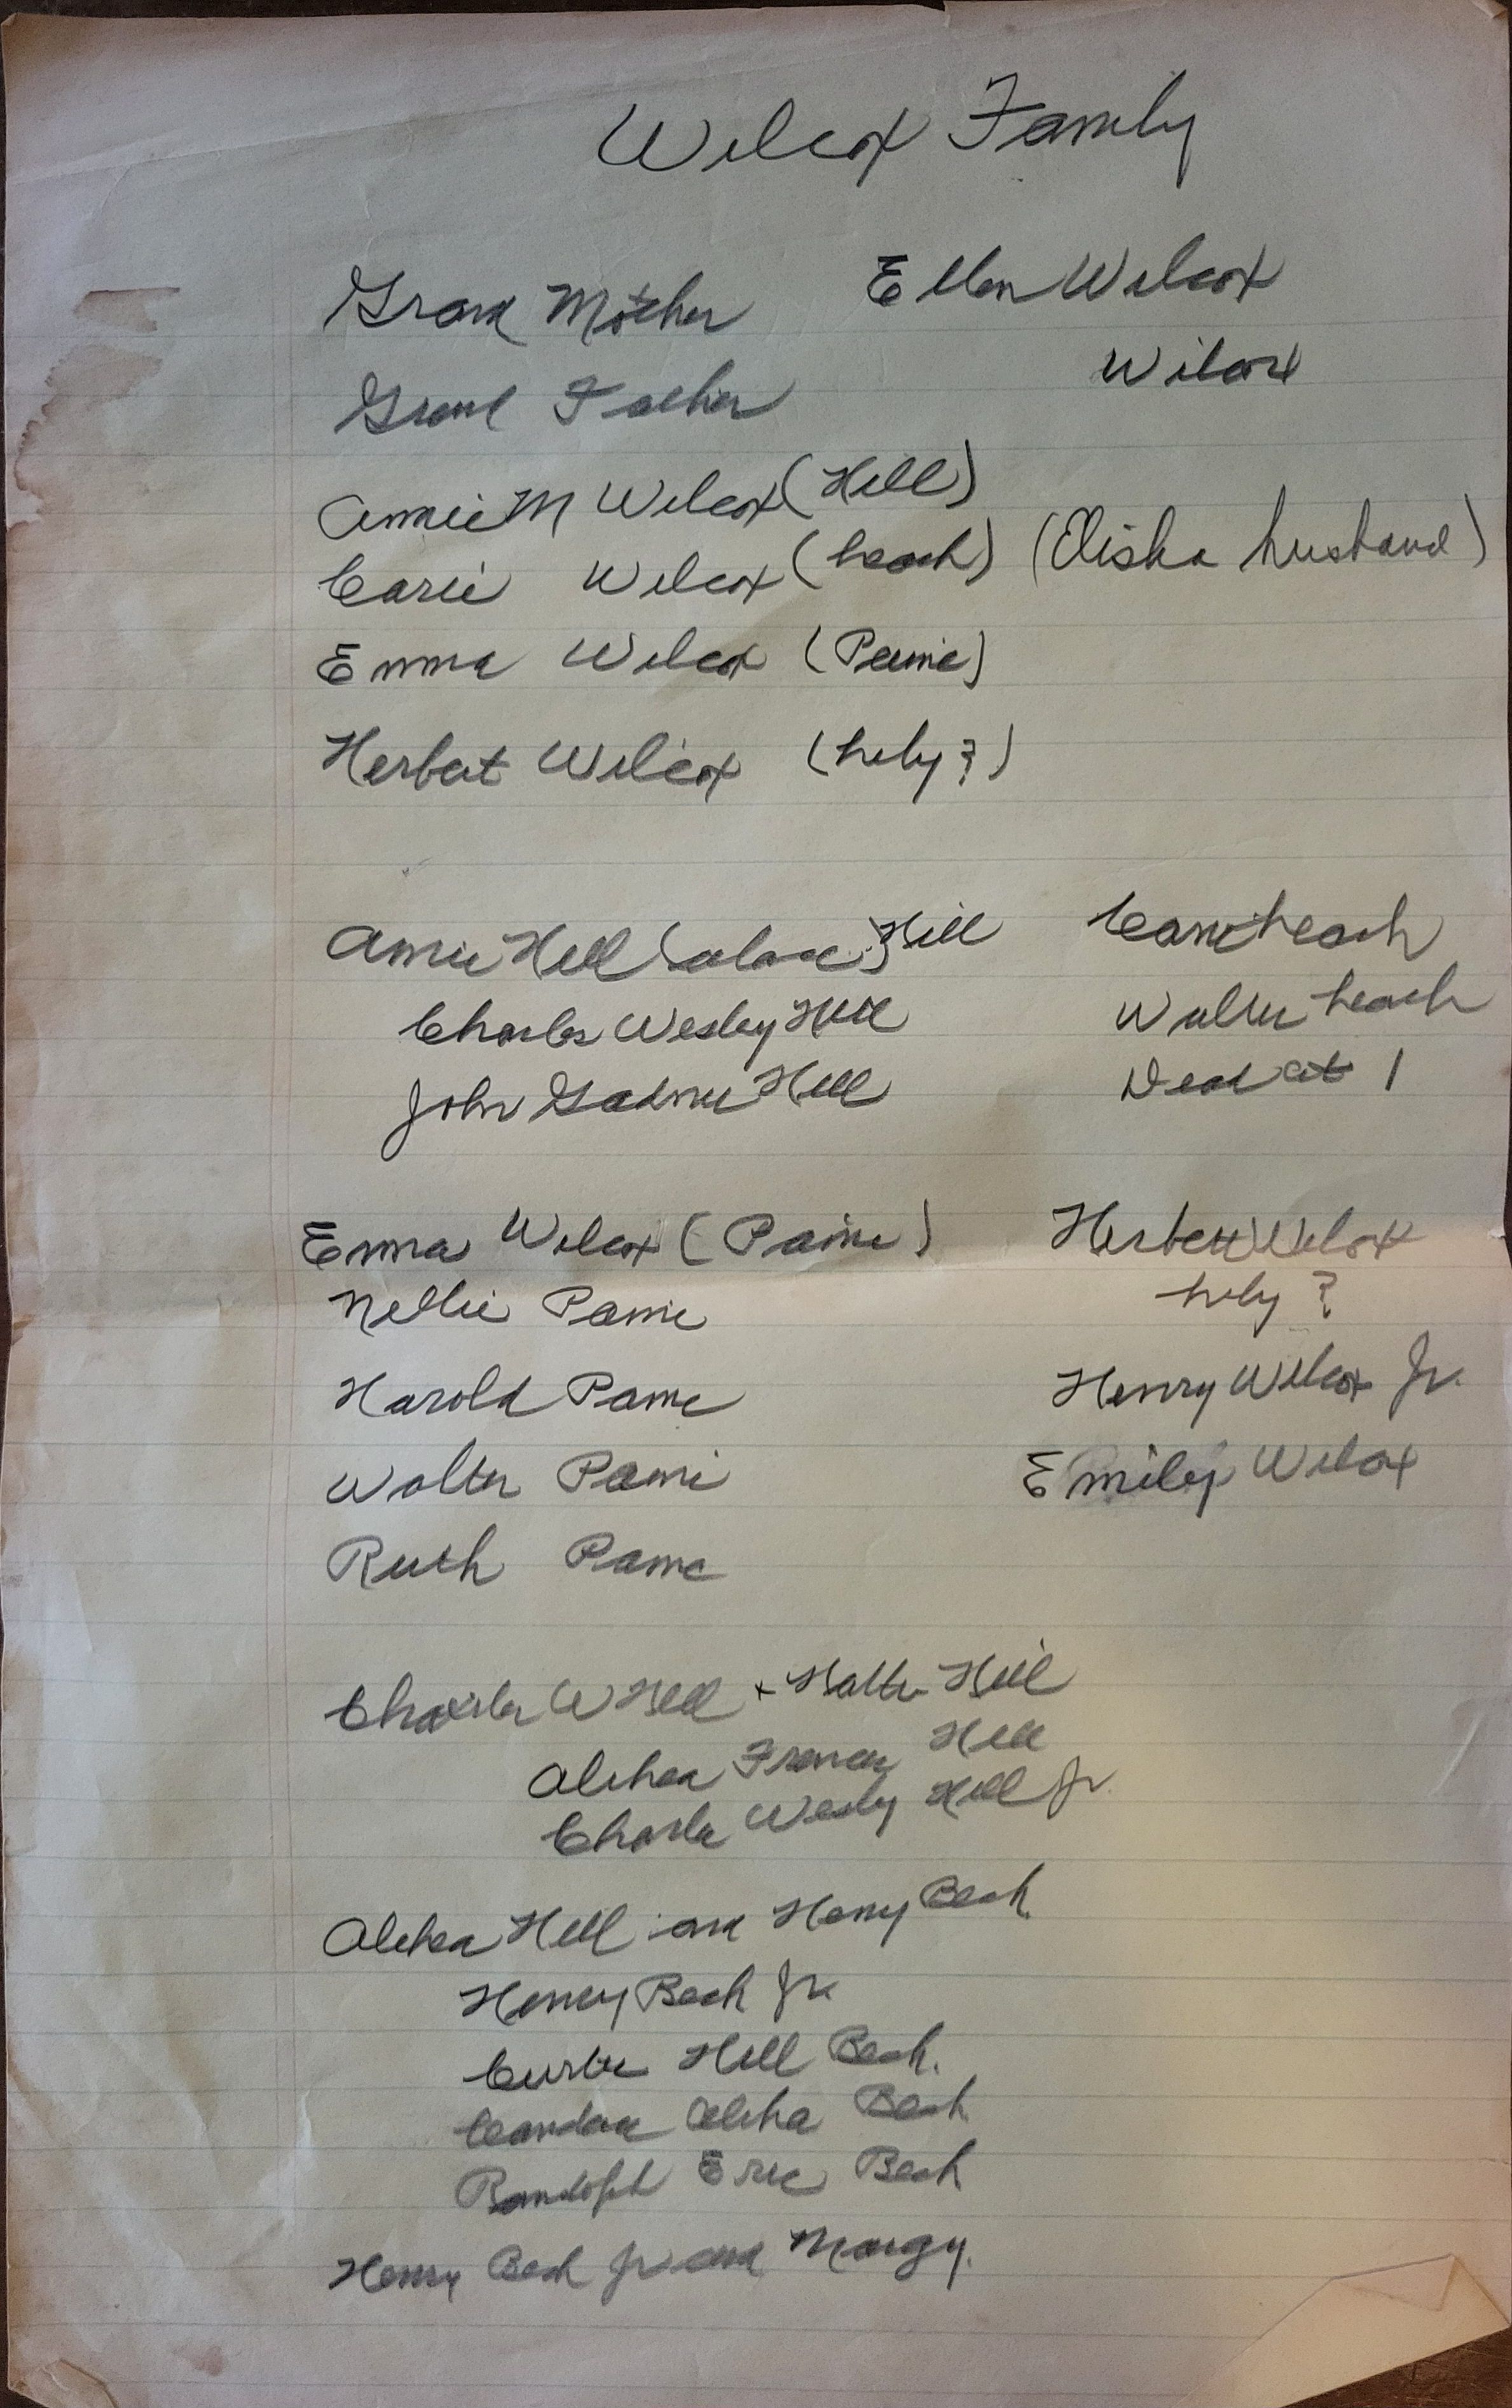 Wilcox Family
Grand Mother Ellen Wilcox
Grand Father Wilcox
Annie M Wilcox (Hill)
Carie Wilcox (Leach) (Elisha husband)
Emma Wilcox (Paine)
Herbert Wilcox (? )
Annie Hill Hill
Charles Wesley Hill
John Hill
Carrie Leach
Walter Leach
Dead at 1
Emma Wilcox (Paine)
Nellie Paine
Harold Paine
Walter Paine
Ruth Paine
Herbert Wilcox
?
Henry Wilcox Jr.
Emily Wilcox
Charles W Hill + Hill
Althea Frances Hill
Charles Wesley Hill Jr.
Althea Hill and Henry Beach
Henry Beach Jr.
Hill Beach.
Althea Beach
Randolph Eric Beach
Henry Beach Jr and Margy.